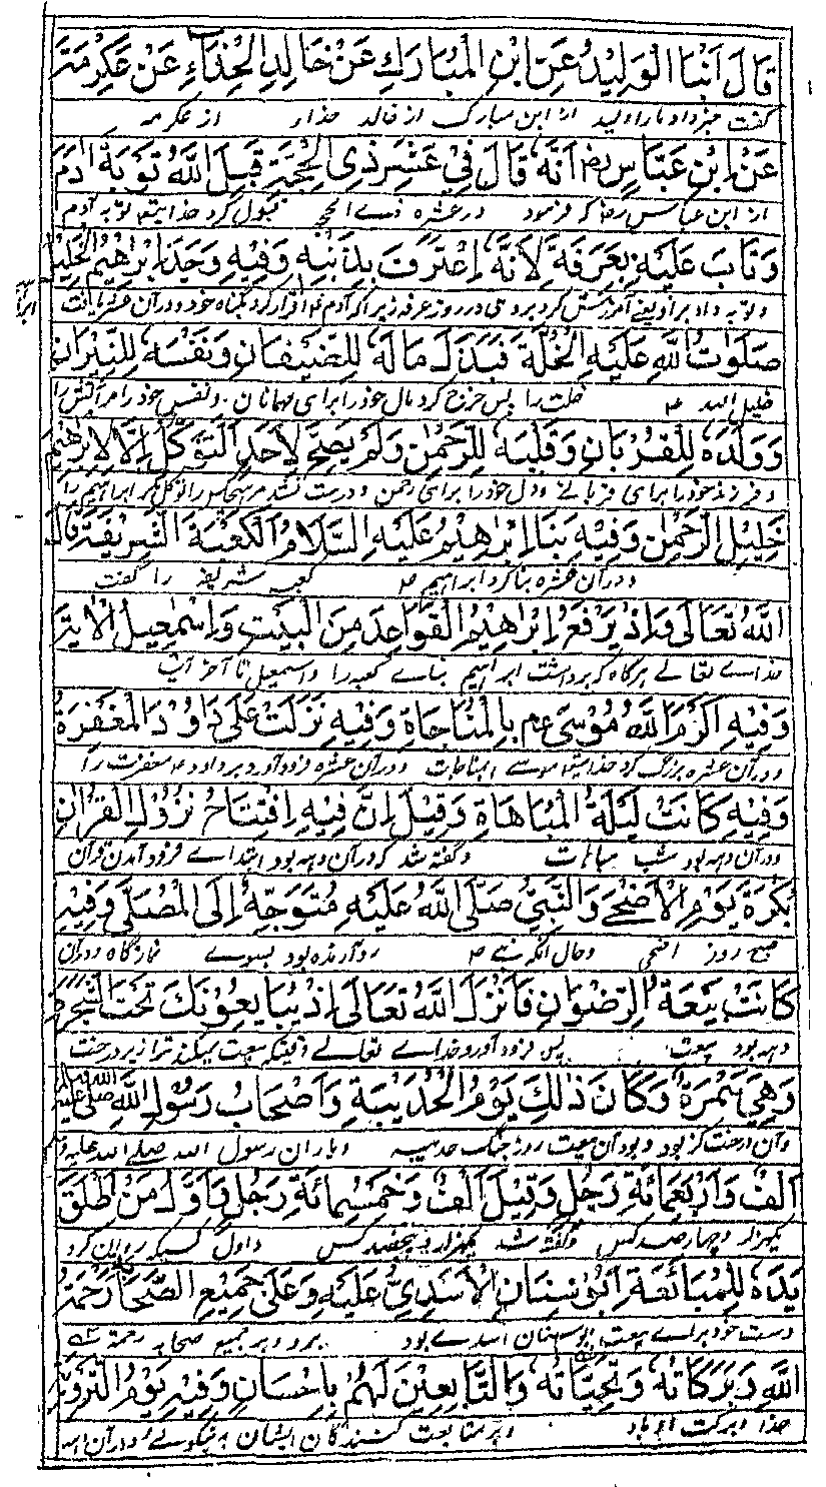 قَالَ اَنْبَا الْوَلِيْدُ عَنِ ابْنِ الْمُبَارَكِ عَنْ خَالِدِ الْحِذَاءِ عَنْ عِكْرِمَةَ
گفت خبر داد ما را ولید از ابن مبارک از خالد حذاء از عکرمه
عَنْ اِبْنِ عَبَّاسٍ رض اَنَّهٗ قَالَ فِيْ عَشْرِ ذِي الْحِجَّةِ قَبِلَ اللّٰهُ تَوْبَةَ اٰدَمَ
از ابن عباس رض که فرمود در عشره ذے الحجه قبول کرد خدایتعالی توبه آدم
وَتَابَ عَلَيْهِ بِعَرَفَةَ لِاَنَّهٗ اِعْتَرَفَ بِذَنْبِهٖ وَفِيْهِ وَجَدَ اِبْرٰهِيْمُ الْخَلِيْلُ
و توبه داد بر او یعنے آمرزش کرد بر وی در روز عرفه زیرا که آدم ع اقرار کرد بگناه خود و درآن عشره یافت
صَلَوٰتُ اللّٰهِ عَلَيْهِ الْخُلَّةَ فَبَذَلَ مَالَهٗ لِلضِّيْفَانِ وَنَفْسَهٗ لِلنِّيْرَانِ
خلیل الله ع خلت را پس خرچ کرد مال خود را برای مهمانان و نفس خود را برای آتش را
وَوَلَدَهٗ لِلْقُرْبَانِ وَقَلْبَهٗ لِلرَّحْمٰنِ وَلَمْ يَصِحَّ لِاَحَدٍ التَّوَكُّلُ اِلَّا لِاِبْرٰهِيْمَ
و فرزند خود را برای قربانے و دل خود را برای رحمن و درست نشد مر هیچکس را توکل مگر ابراهیم را
خَلِيْلِ الرَّحْمٰنِ وَفِيْهِ بَنَا اِبْرٰهِيْمُ عَلَيْهِ السَّلَامُ الْكَعْبَةَ الشَّرِيْفَةَ قَالَ
و درآن عشره بنا کرد ابراهیم ع کعبه شریفه را گفت
اللّٰهُ تَعَالٰى وَاِذْ يَرْفَعُ اِبْرٰهِيْمُ الْقَوَاعِدَ مِنَ الْبَيْتِ وَاِسْمٰعِيْلُ الْاٰيَةَ
خداے تعالے هرگاه که برداشت ابراهیم بناے کعبه را و اسمعیل تا آخر آیت
وَفِيْهِ اَكْرَمَ اللّٰهُ مُوْسٰى عم بِالْمُنَاجَاةِ وَفِيْهِ نَزَلَتْ عَلٰى دَاوٗدَ الْمَغْفِرَةُ
و درآن عشره بزرگ کرد خدایتعالی موسے را بمناجات و درآن عشره فرود آورد بر داود ع مغفرت را
وَفِيْهِ كَانَتْ لَيْلَةُ الْمُبَاهَاةِ وَقِيْلَ اِنَّ فِيْهِ اِفْتِتَاحَ نُزُوْلِ الْقُرْاٰنِ
و درآن دهه بود شب مباهات و گفته شد که درآن دهه بود ابتداے فرود آمدن قرآن
بُكْرَةَ يَوْمِ الْاَضْحٰى وَالنَّبِيُّ صَلَّى اللّٰهُ عَلَيْهِ مُتَوَجِّهٌ اِلَى الْمُصَلّٰى وَفِيْهِ
صبح روز اضحی و حال آنکه نبے ص رو آرنده بود بسوے نمازگاه و درآن
كَانَتْ بَيْعَةُ الرِّضْوَانِ فَاَنْزَلَ اللّٰهُ تَعَالٰى اِذْ يُبَايِعُوْنَكَ تَحْتَ الشَّجَرَةِ
دهه بود بیعت پس فرود آورد خداے تعالے وقتیکه بیعت میکنند ترا زیر درخت
وَهِيَ سَمُرَةٌ وَكَانَ ذٰلِكَ يَوْمَ الْحُدَيْبِيَةِ وَاَصْحَابُ رَسُوْلِ اللّٰهِ صَلَّى اللّٰهُ عَلَيْهِ
و آن درخت کز بود و بود آن بیعت روز جنگ حدیبیه و یاران رسول الله صلے الله علیه وسلم
اَلْفٌ وَاَرْبَعُمِائَةِ رَجُلٍ وَقِيْلَ اَلْفٌ وَخَمْسُمِائَةِ رَجُلٍ وَاَوَّلُ مَنْ اَطْلَقَ
یکهزار و چهار صد کس و گفته شد یکهزار و پنجصد کس و اول کسیکه روان کرد
يَدَهٗ لِلْمُبَايَعَةِ اَبُوْ سِنَانِ الْاَسَدِيُّ عَلَيْهِ وَعَلٰى جَمِيْعِ الصَّحَابَةِ رَحْمَةُ
دست خود براے بیعت ابو سنان اسدے بود بر وے و بر جمیع صحابه رحمت
اللّٰهِ وَبَرَكَاتُهٗ وَتَحِيَّاتُهٗ وَالتَّابِعِيْنَ لَهُمْ بِاِحْسَانٍ وَفِيْهِ يَوْمُ التَّرْوِيَةِ
خدا و برکت او باد و بر متابعت کنندگان ایشان به نیکوئے و درآن